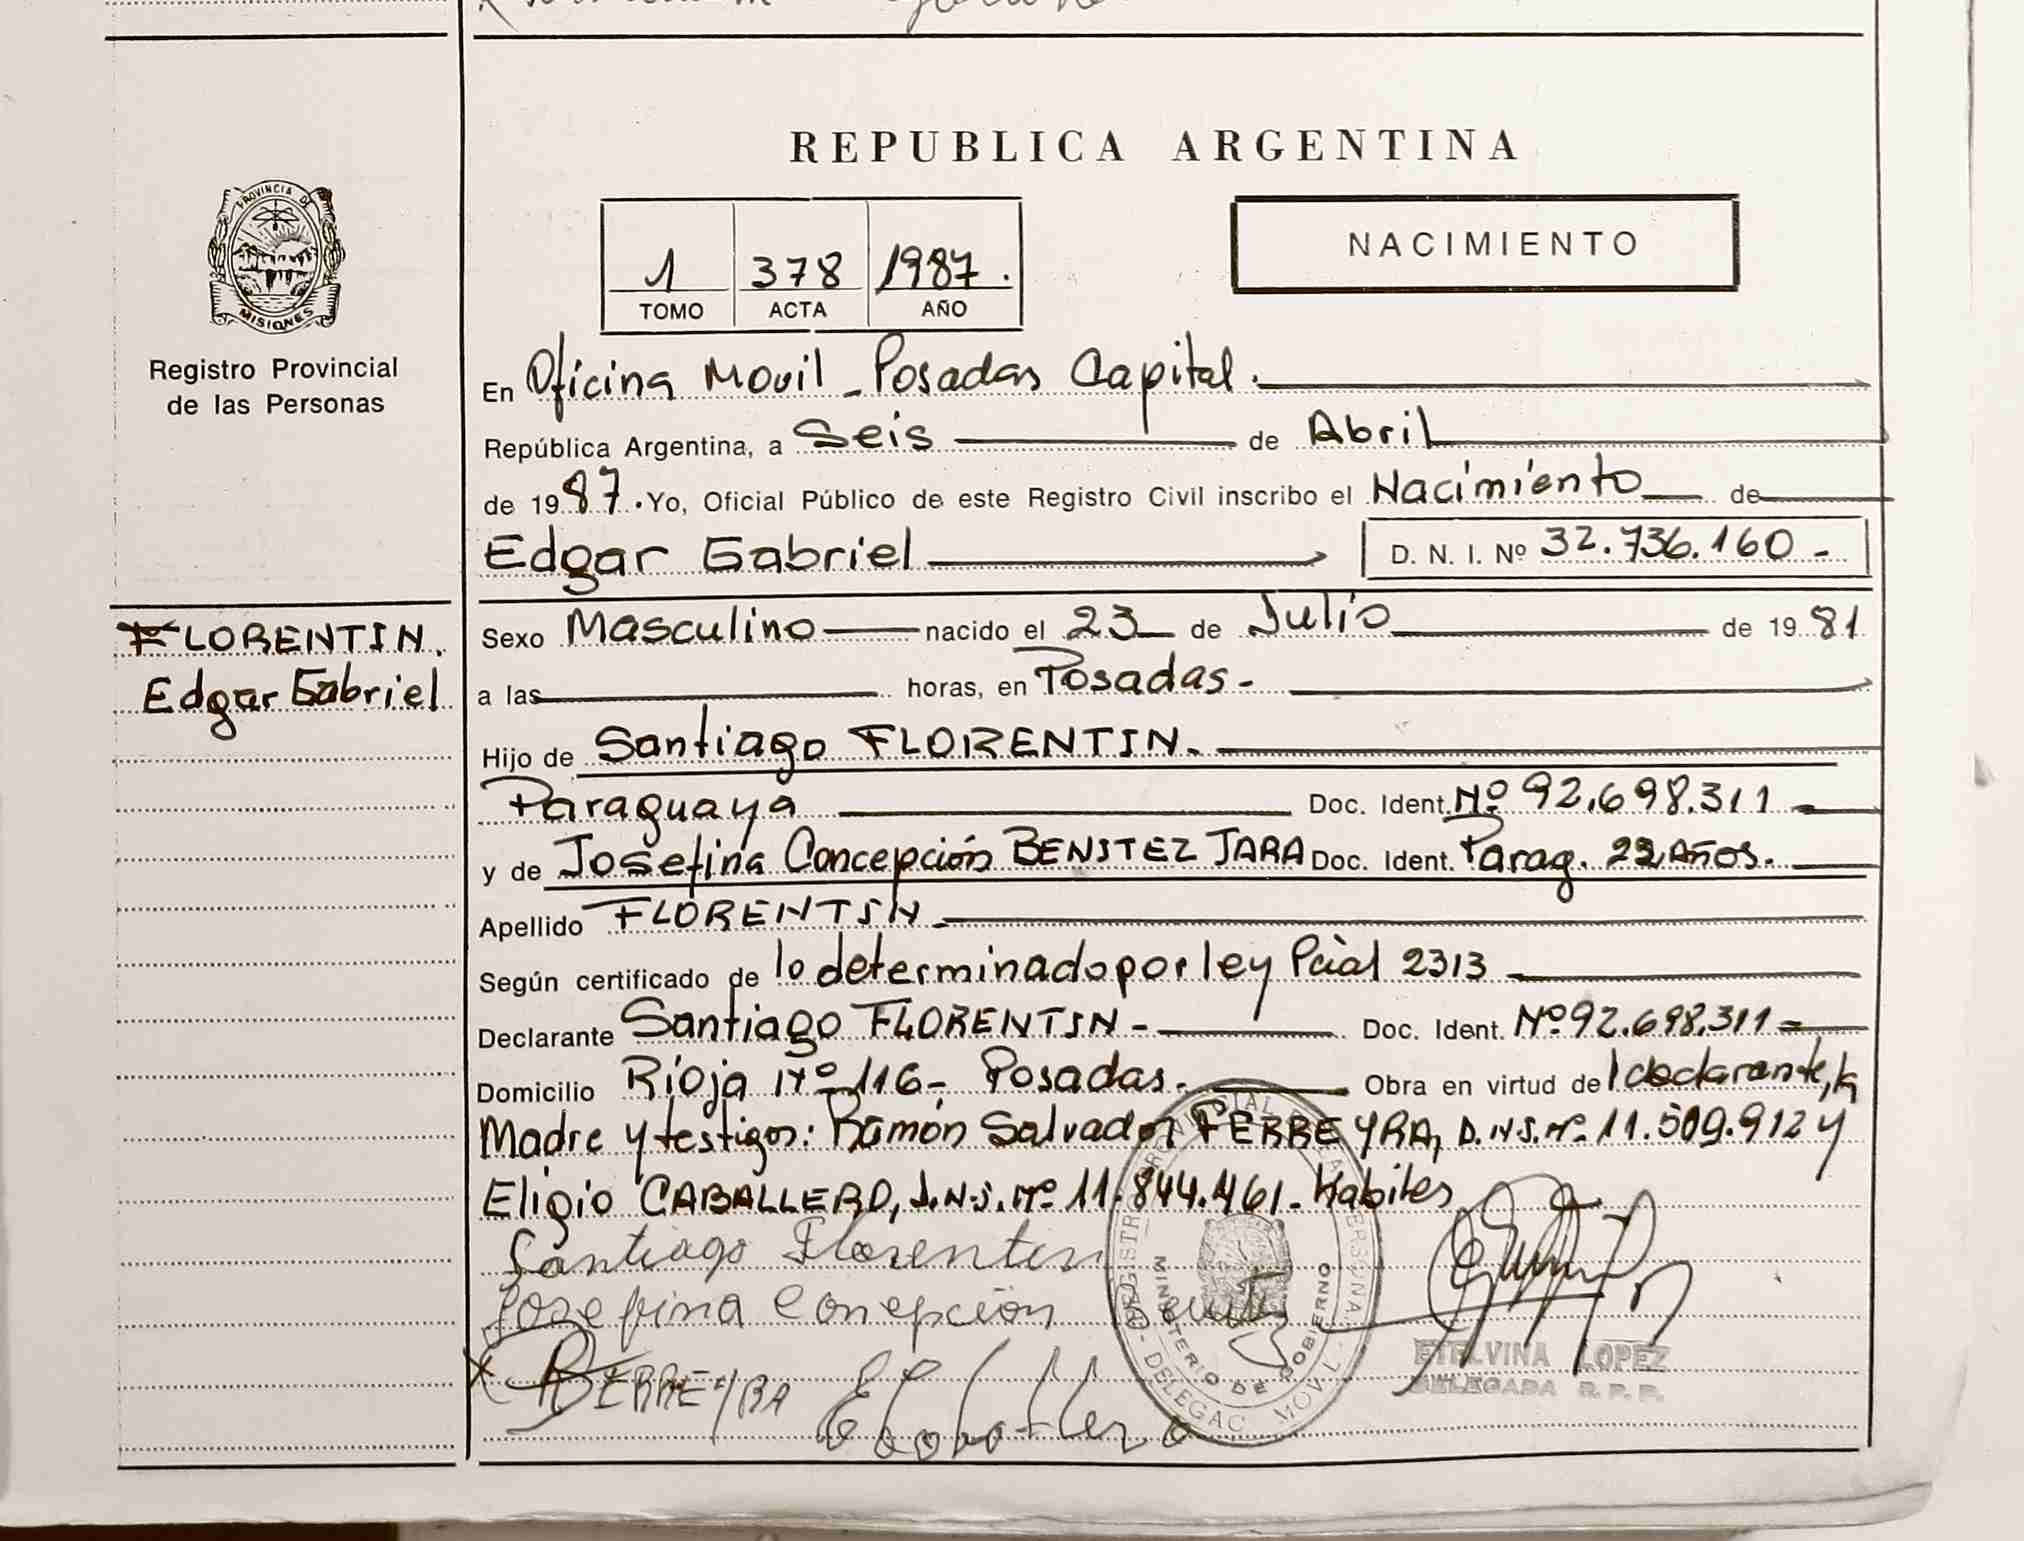 REPUBLICA ARGENTINA
PROVINCIA D
MISIONES
Registro Provincial
de las Personas
1 378 1987.
TOMO ACTA AÑO
NACIMIENTO
En Oficina Movil - Posadas Capital.
República Argentina, a Seis de Abril
de 1987. Yo, Oficial Público de este Registro Civil inscribo el Nacimiento de
Edgar Gabriel D. N. I. Nº 32.736.160 -
FLORENTIN.
Edgar Gabriel
Sexo Masculino nacido el 23 de Julio de 1981
a las horas, en Posadas -
Hijo de Santiago FLORENTIN.
Paraguaya Doc. Ident. Nº 92.698.311
y de Josefina Concepción BENITEZ JARA Doc. Ident. Parag. 22 Años.
Apellido FLORENTIN
Según certificado de lo determinado por ley Pcial 2313
Declarante Santiago FLORENTIN - Doc. Ident. Nº 92.698.311 -
Domicilio Rioja Nº 116 - Posadas. Obra en virtud del declarante, la
Madre y testigos: Ramón Salvador FERREYRA, D.N.I. Nº 11.509.912 y
Eligio CABALLERO, D.N.I. Nº 11.844.461 - Habiles
Santiago Florentin
Josefina Concepción
FERREYRA
MINISTERIO DE GOBIERNO
DELEGAC MOVIL
ETELVINA LOPEZ
DELEGADA R. P. P.